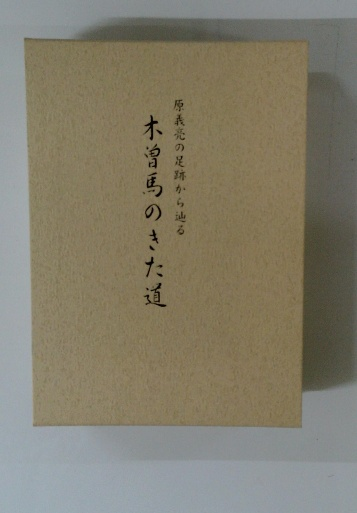 原義亮の足跡から辿る
木曽馬のきた道